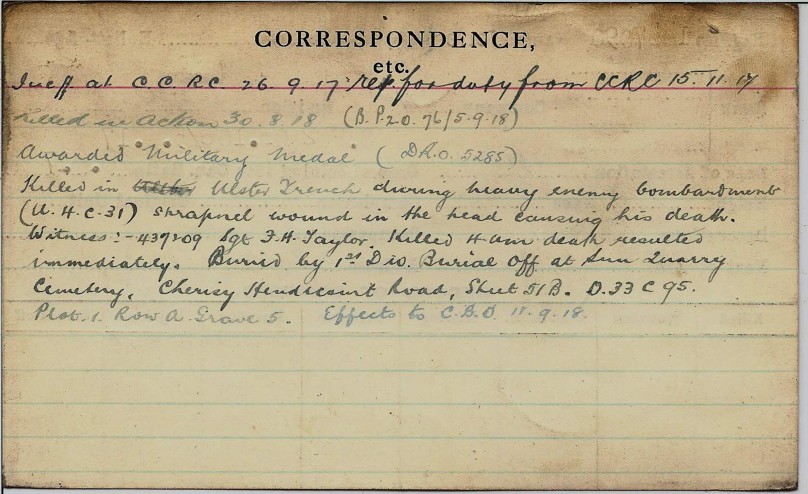 CORRESPONDENCE,
etc.
Ineff at C.C.R.C. 26.9.17. rep. for duty from CCRC 15.11.17
Killed in action 30.8.18 (B.P.20.76/5-9-18)
Awarded Military Medal (D.R.O. 5285)
Killed in Ulster Trench during heavy enemy bombardment
(U.H.C-31) shrapnel wound in the head causing his death.
Witness:- Sgt F.H. Taylor. Killed 4 am death resulted
immediately. Buried by 1st Div. Burial Off at Sun Quarry
Cemetery, Cherisy Hendicourt Road, Sheet 51B. O.33 C 95.
Plot. 1. Row A. Grave 5. Effects to C.B.O. 11.9.18.